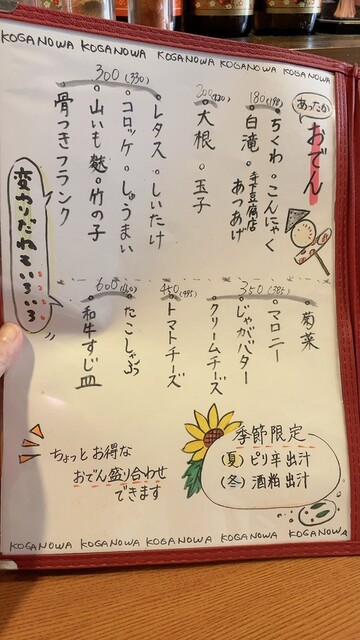 KOGANOWA KOGANOWA KOGANOWA KOGANOWA KOGANOWA
あったか
おでん
180(198)
ちくわ
こんにゃく
白滝
寺下豆腐店
あつあげ
200(220)
大根
玉子
300(330)
レタス
しいたけ
コロッケ
しゅうまい
山いも麩
竹の子
骨つきフランク
変わりだねでいろいろ
菊菜
350(385)
マロニー
じゃがバター
クリームチーズ
450(495)
トマトチーズ
たこしゃぶ
600(660)
和牛すじ皿
季節限定
(夏) ピリ辛出汁
(冬) 酒粕出汁
ちょっとお得な
おでん盛り合わせ
できます
KOGANOWA KOGANOWA KOGANOWA KOGANOWA KOGANOWA KOGANOWA